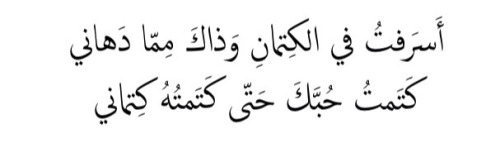 أَسرَفتُ في الكِتمانِ وَذاكَ مِمّا دَهاني
كَتَمتُ حُبَّكَ حَتّى كَتَمتُهُ كِتماني